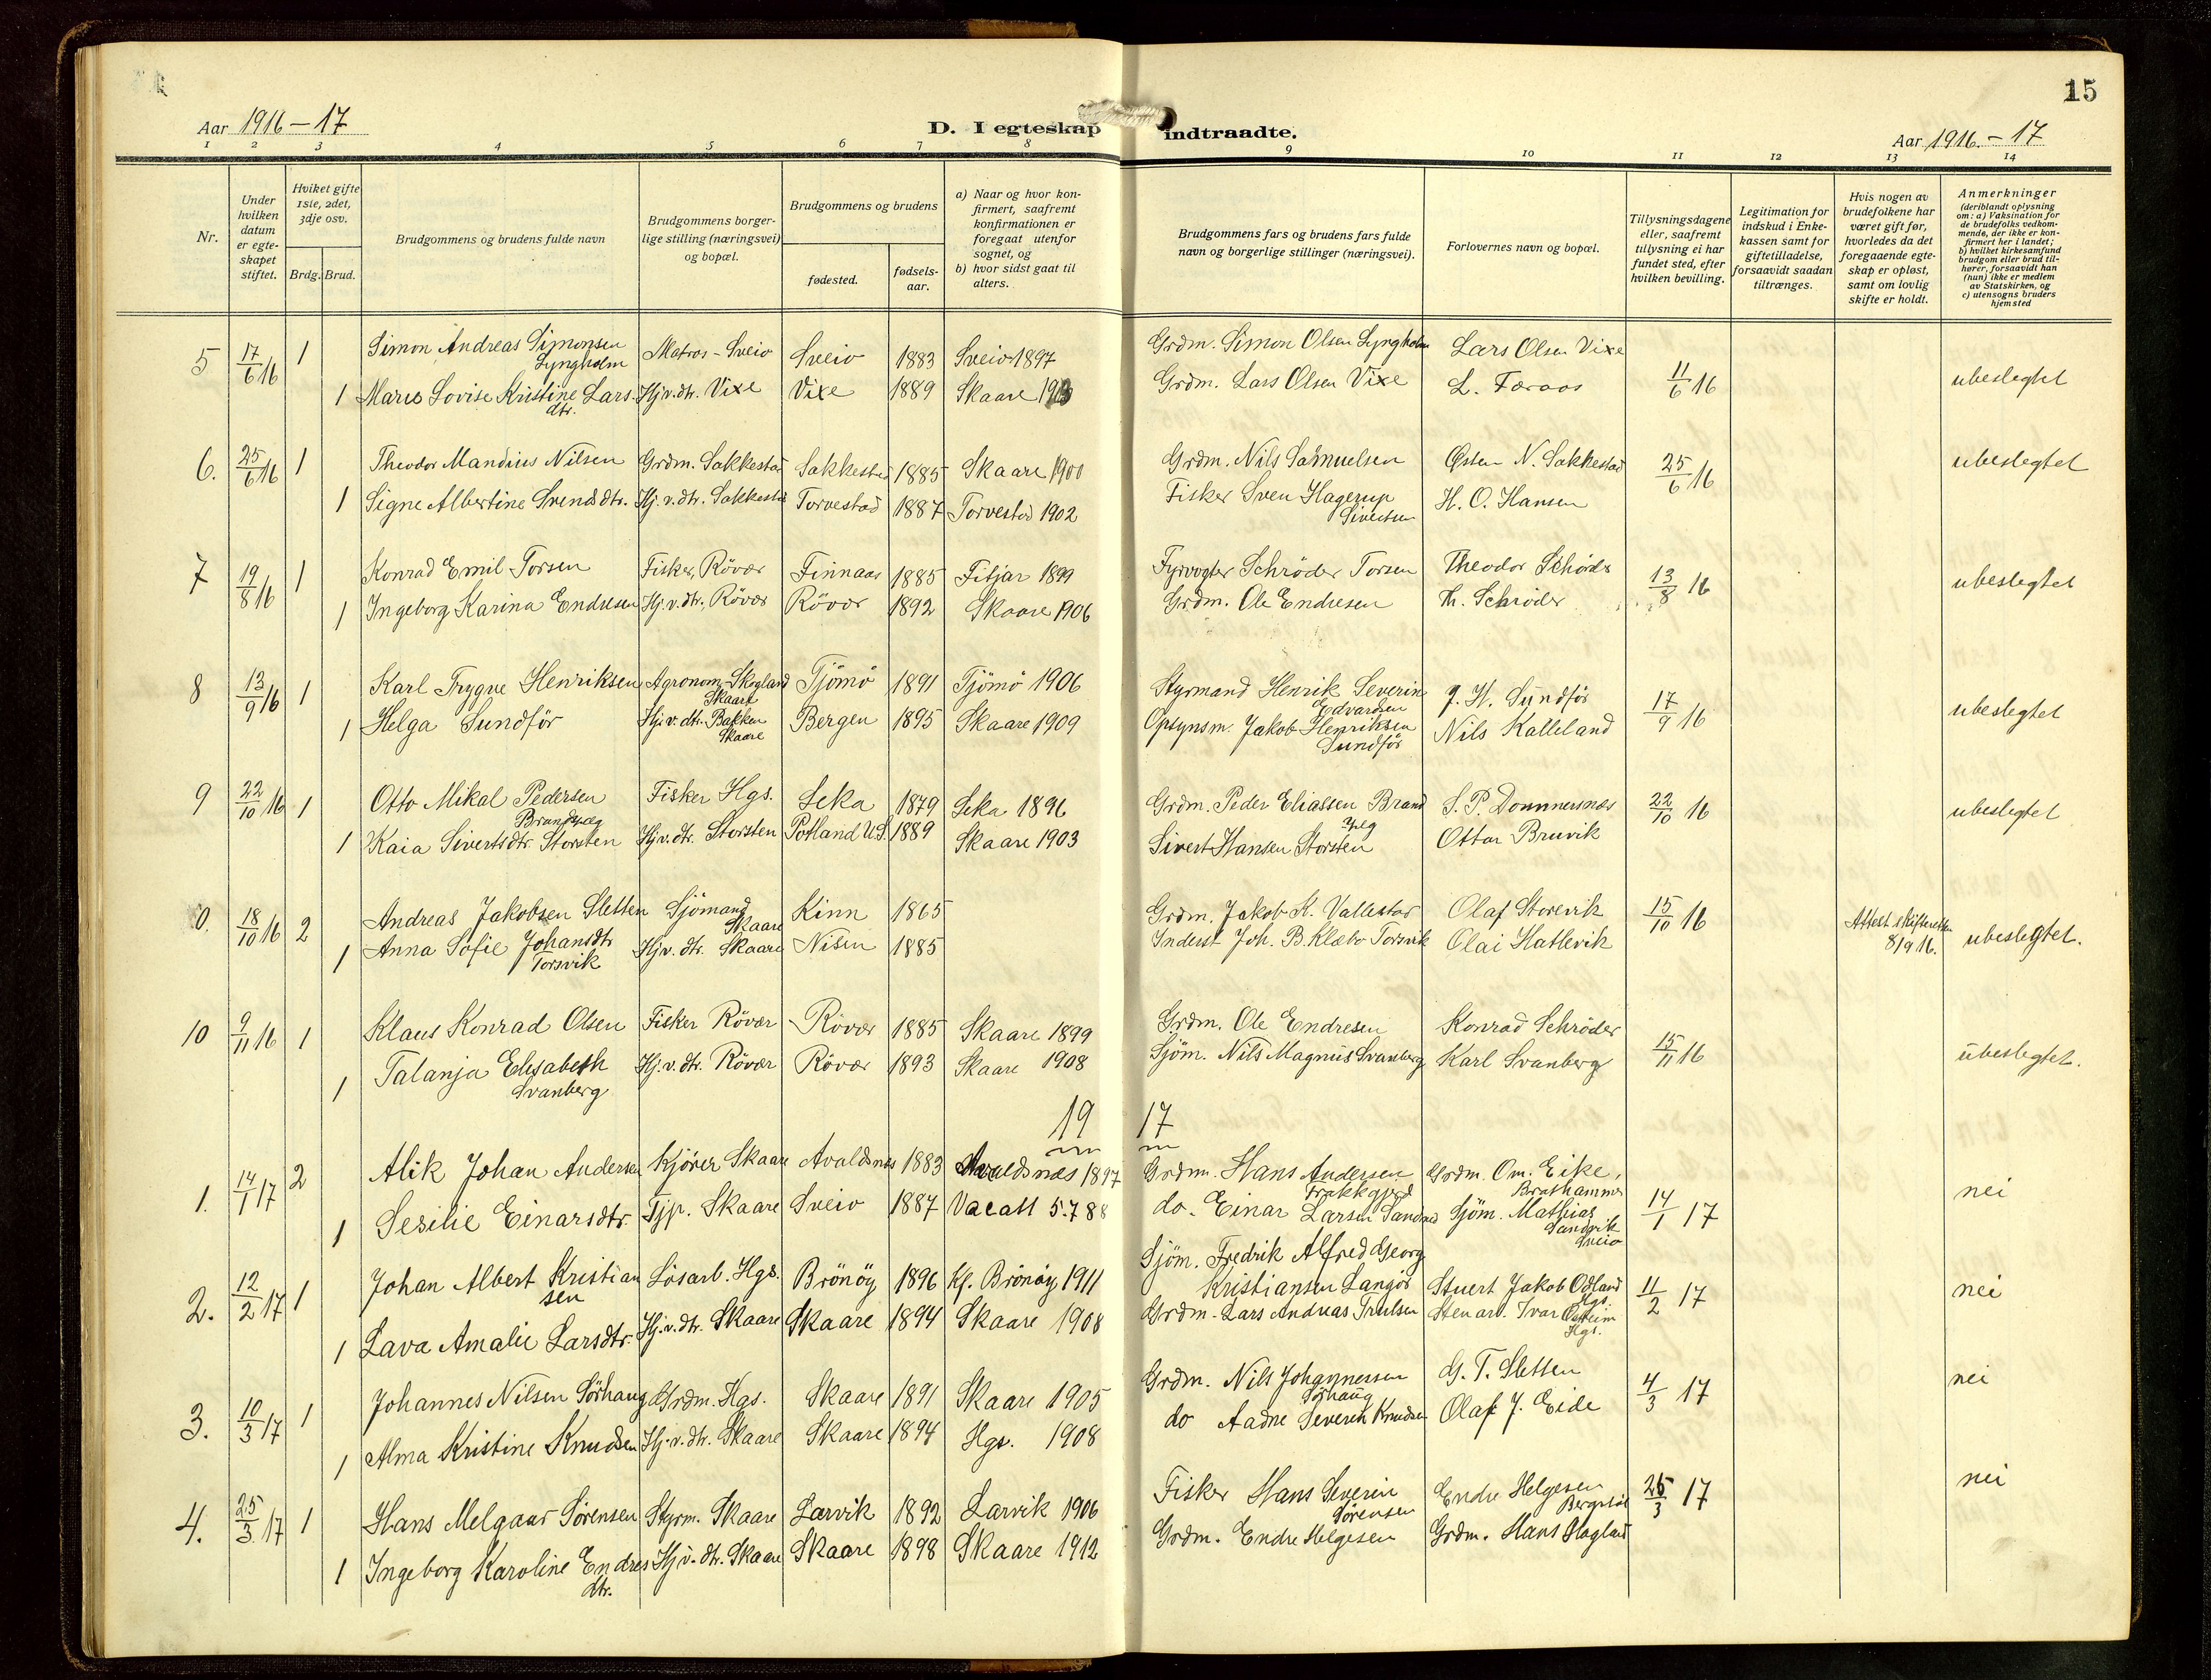 15
Aar 1916-17
D. I egteskap indtraadte.
Aar 1916.-17
1 2 3 4 5 6 7 8 9 10 11 12 13 14
Nr.
Under hvilken datum er egteskapet stiftet.
Hviket gifte 1ste, 2det, 3dje osv.
Brdg. Brud.
Brudgommens og brudens fulde navn
Brudgommens borgerlige stilling (næringsvei) og bopæl.
Brudgommens og brudens
fødested.
fødselsaar.
a) Naar og hvor konfirmert, saafremt konfirmationen er foregaat utenfor sognet, og
b) hvor sidst gaat til alters.
Brudgommens fars og brudens fars fulde navn og borgerlige stillinger (næringsvei).
Forlovernes navn og bopæl.
Tillysningsdagene eller, saafremt tillysning ei har fundet sted, efter hvilken bevilling.
Legitimation for indskud i Enkekassen samt for giftetilladelse, forsaavidt saadan tiltrænges.
Hvis nogen av brudefolkene har været gift før, hvorledes da det foregaaende egteskap er opløst, samt om lovlig skifte er holdt.
Anmerkninger (deriblandt oplysning om: a) Vaksination for de brudefolks vedkommende, der ikke er konfirmert her i landet; b) hvilket kirkesamfund brudgom eller brud tilhører, forsaavidt han (hun) ikke er medlem av Statskirken, og c) utensogns bruders hjemsted
5 17/6 16 1 Simon Andreas Simonsen Lyngholm Matros - Sveio Sveio 1883 Sveio 1897 Grdm. Simon Olsen Lyngholm Lars Olsen Vixe 11/6 16 ubeslegtet
1 Marie Lovise Kristine Lars.dtr. Hj.v.dtr. Vixe Vixe 1889 Skaare Grdm. Lars Olsen Vixe L. Færaas
6. 25/6 16 1 Theodor Mandius Nilsen Grdm. Sakkestad Sakkestad 1885 Skaare 1900 Grdm. Nils Samuelsen Østen N. Sakkestad 25/6 16 ubeslegtet
1 Signe Albertine Svendsdtr. Hj.v.dtr. Sakkestad Torvestad 1887 Torvestad 1902 Fisker Sven Hagerup Sivertsen H. O. Hansen
7 19/8 16 1 Konrad Emil Torsen Fisker, Rövær Finnaas 1885 Fitjar 1899 Fyrvogter Schröder Torsen Theodor 13/8 16 ubeslegtet
1 Ingeborg Karina Endresen Hj.v.dtr., Rövær Rövær 1892 Skaare 1906 Grdm. Ole Endresen Th. Schröder
8 13/9 16 1 Karl Trygve Henriksen Agronom Skogland Skaare Tjömö 1891 Tjömö 1906 Styrmand Henrik Severin Edvardsen J. H. Sundför 17/9 16 ubeslegtet
1 Helga Sundför Hj.v.dtr. Bakken Skaare Bergen 1895 Skaare 1909 Opsynsm. Jakob Henriksen Sundför Nils Kalleland
9 22/10 16 1 Otto Mikal Pedersen Fisker Hgs. Leka 1879 Leka 1896 Grdm. Peder Eliassen Brand S. P. Dommersnes 22/10 16 ubeslegtet
1 Kaia Sivertsdtr. Storsten Hj.v.dtr. Storsten Potland U.S. 1889 Skaare 1903 Sivert Hansen Storsten Ottar Bruvik
0. 18/10 16 2 Andreas Jakobsen Sletten Sjömand Skaare Kinn 1865 Grdm. Jakob K. Vallestad Olaf Storevik 15/10 16 Attest skifteretten 8/9 16. ubeslegtet.
1 Anna Sofie Johansdtr Torsvik Hj.v.dtr. Skaare Nisen 1885 Inderst Joh. B. Klæbo Torsvik Olai Hatlevik
10 9/11 16 1 Klaus Konrad Olsen Fisker Rövær Rövær 1885 Skaare 1899 Grdm. Ole Endresen Konrad Schröder 15/11 16 ubeslegtet.
1 Talanja Elisabeth Svanberg Hj.v.dtr. Rövær Rövær 1893 Skaare 1908 Sjöm. Nils Magnus Svanberg Karl Svanberg
19 17
1. 14/1 17 2 Alik Johan Andersen Kjörer Skaare Avaldsnes 1883 Avaldsnæs 1897 Grdm. Hans Andersen Grdm. Om. Eike, 14/1 17 nei
1 Sesilie Einarsdtr. Tjp. Skaare Sveio 1887 do. Einar Larsen Sjöm. Mathias Sandvik Sveio
2. 12/2 17 1 Johan Albert Kristiansen Lösarb. Hgs. Brönöy 1896 Kf. Brönöy 1911 Sjöm. Fredrik Alfred Georg Kristiansen Langös Stuert Jakob Odland Hgs. 11/2 17 nei
1 Lava Amalie Larsdtr. Hj.v.dtr. Skaare Skaare 1894 Skaare 1908 Grdm. Lars Andreas Trulsen Stenarb. Ivar Østheim Hgs.
3. 10/3 17 1 Johannes Nilsen Sörhaug Grdm. Hgs. Skaare 1891 Skaare 1905 Grdm. Nils Johannessen Sörhaug G. T. Sletten 4/3 17 nei
1 Alma Kristine Knudsen Hj.v.dtr. Skaare Skaare 1894 Hgs. 1908 do Aadne Severin Knudsen Olaf J. Eide
4. 25/3 17 1 Hans Melgaar Sørensen Styrm. Skaare Larvik 1892 Larvik 1906 Fisker Hans Severin Sørensen Endre Helgesen 25/3 17 nei
1 Ingeborg Karoline Endresdtr. Hj.v.dtr. Skaare Skaare 1898 Skaare 1912 Grdm. Endre Helgesen Grdm. Hans Hagland